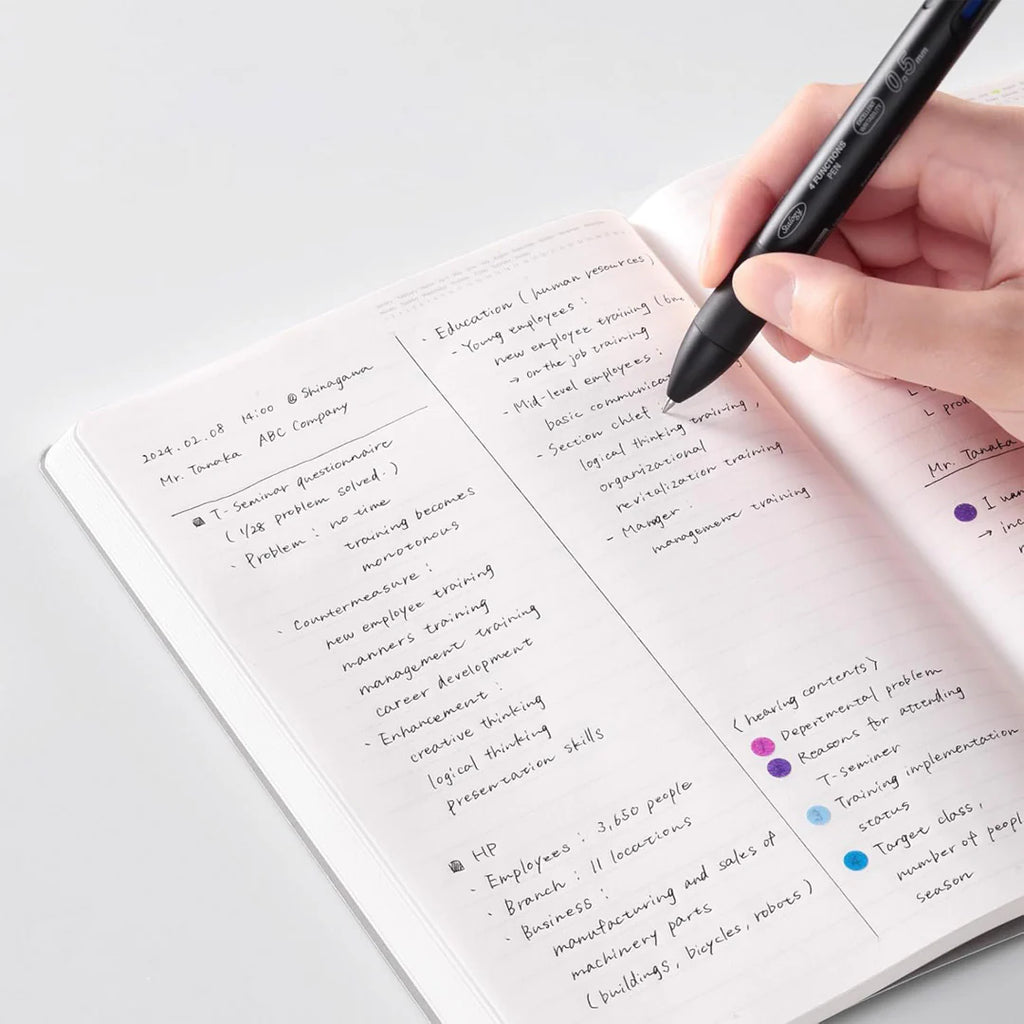 2024.02.08 14:00 @Shinagawa
Mr. Tanaka ABC Company
T-Seminar questionnaire
(1/28 problem solved.)
・Problem : no time
training becomes
monotonous
・Countermeasure :
new employee training
manners training
management training
career development
・Enhancement :
creative thinking
logical thinking
presentation skills
HP
・Employees : 3,650 people
・Branch : 11 locations
・Business :
manufacturing and sales of
machinery parts
(buildings, bicycles, robots)
・Education (human resources)
- Young employees :
new employee training
→ on the job training
- Mid-level employees :
basic
- Section chief
logical thinking training,
organizational
revitalization training
- Manger :
management training
<hearing contents>
1 Depertmental problem
2 Reasons for attending
T-Seminer
3 Training implementation
status
4 Target class,
number of
season
L
L
Mr. Tanaka
I
→
Stalogy
4 FUNCTIONS
PEN
EXCELLENT
0.5mm